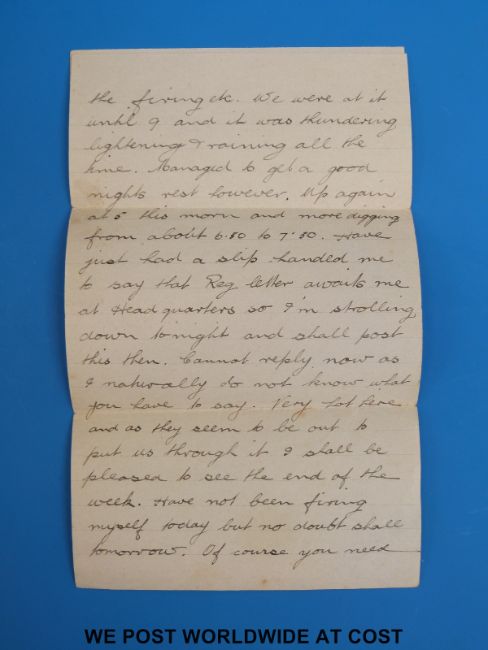 the firing etc. We were at it
until 9 and it was thundering
lightening & raining all the
time. Managed to get a good
nights rest however. Up again
at 5 this morn and more digging
from about 6.30 to 7.30. Have
just had a slip handed me
to say that Reg letter awaits me
at Headquarters so I'm strolling
down tonight and shall post
this then. Cannot reply now as
I naturally do not know what
you have to say. Very hot here
and as they seem to be out to
put us through it I shall be
pleased to see the end of the
week. Have not been firing
myself today but no doubt shall
tomorrow. Of course you need
WE POST WORLDWIDE AT COST